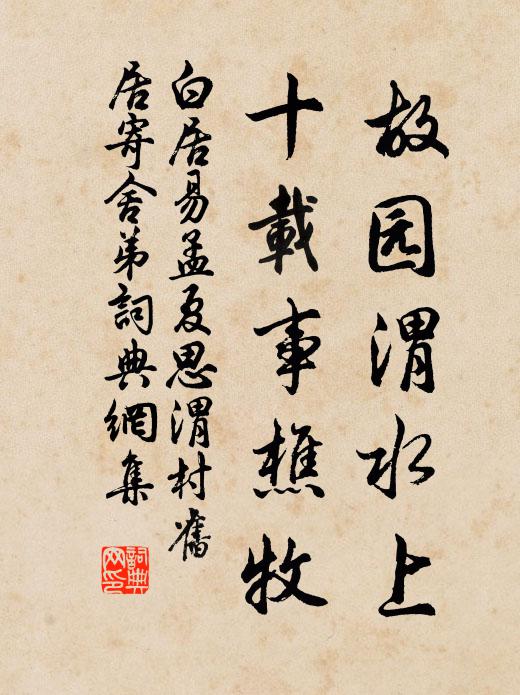 故园渭水上
十載事樵牧
白居易孟夏思渭村舊
居寄舍弟詞典網集
詞典
网印